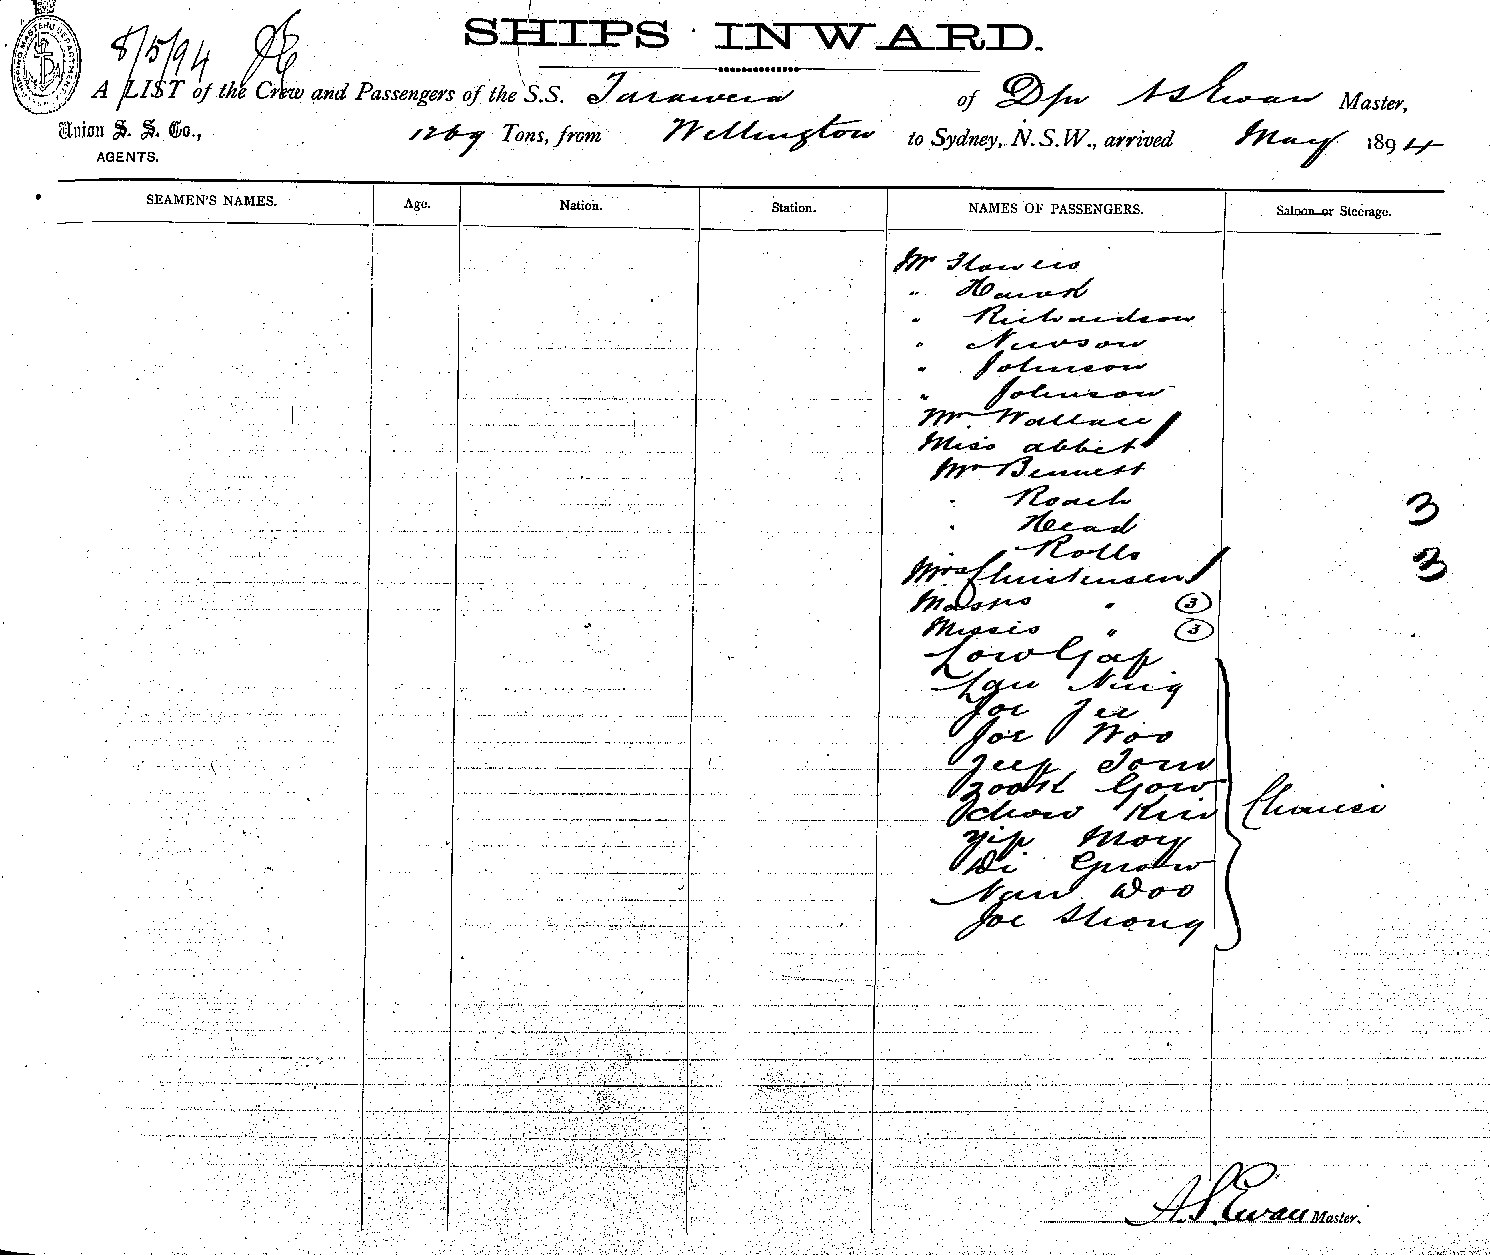 SHIPS INWARD.
8/5/94
A LIST of the Crew and Passengers of the S.S. Tarawera of Dpn A S Ewan Master,
Union S. S. Co., AGENTS. 1269 Tons, from Wellington to Sydney, N.S.W., arrived May 1894
SEAMEN'S NAMES. Age. Nation. Station. NAMES OF PASSENGERS. Saloon or Steerage.
Mr Flowers
"
" Richardson
" Newson
" Johnson
" Johnson
Mr Wallace
Miss Abbit
Mr Bennett
" Roach 3
" Head
Rolls
Mrs Christensen 3
Masrs " 3
Misses " 3
Low Gap
Lau
Joe Jee
Joe Woo
Jeep Tom
Gow
Chow Kin
Yip Moy
Di
Nan Woo
Joe Shong
A.S. Ewan Master.